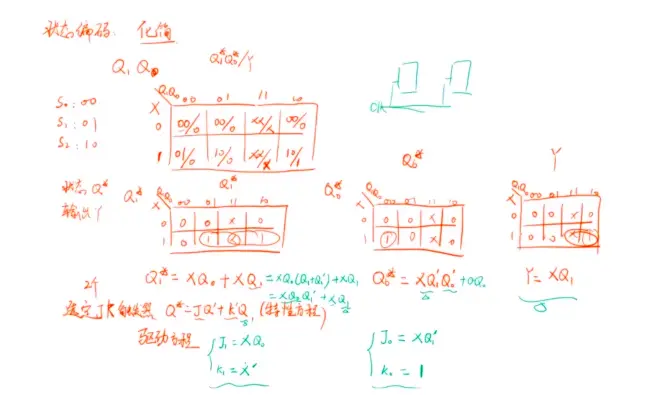 状态编码： 化简
Q₁ Q₀ Q₁*Q₀*/Y
S₀: 00
S₁: 01
S₂: 10
X Q₁Q₀ 00 01 11 10
0 00/0 00/0 xx/x 00/0
1 01/0 10/0 xx/x 10/1
clk
状态 Q*
输出 Y
Q₁* Q₁*
X Q₁Q₀ 00 01 11 10
0 0 0 x 0
1 0 1 x 1
Q₀* Q₀*
X Q₁Q₀ 00 01 11 10
0 0 0 x 0
1 1 0 x 0
Y
X Q₁Q₀ 00 01 11 10
0 0 0 x 0
1 0 0 x 1
Q₁* = XQ₀ + XQ₁ = XQ₀(Q₁+Q₁') + XQ₁
= XQ₀Q₁' + XQ₁
Q₀* = XQ₁'Q₀' + 0Q₀
Y = XQ₁
2个
选定JK触发器 Q* = JQ' + K'Q (特性方程)
驱动方程
J₁ = XQ₀
K₁ = X'
J₀ = XQ₁'
K₀ = 1